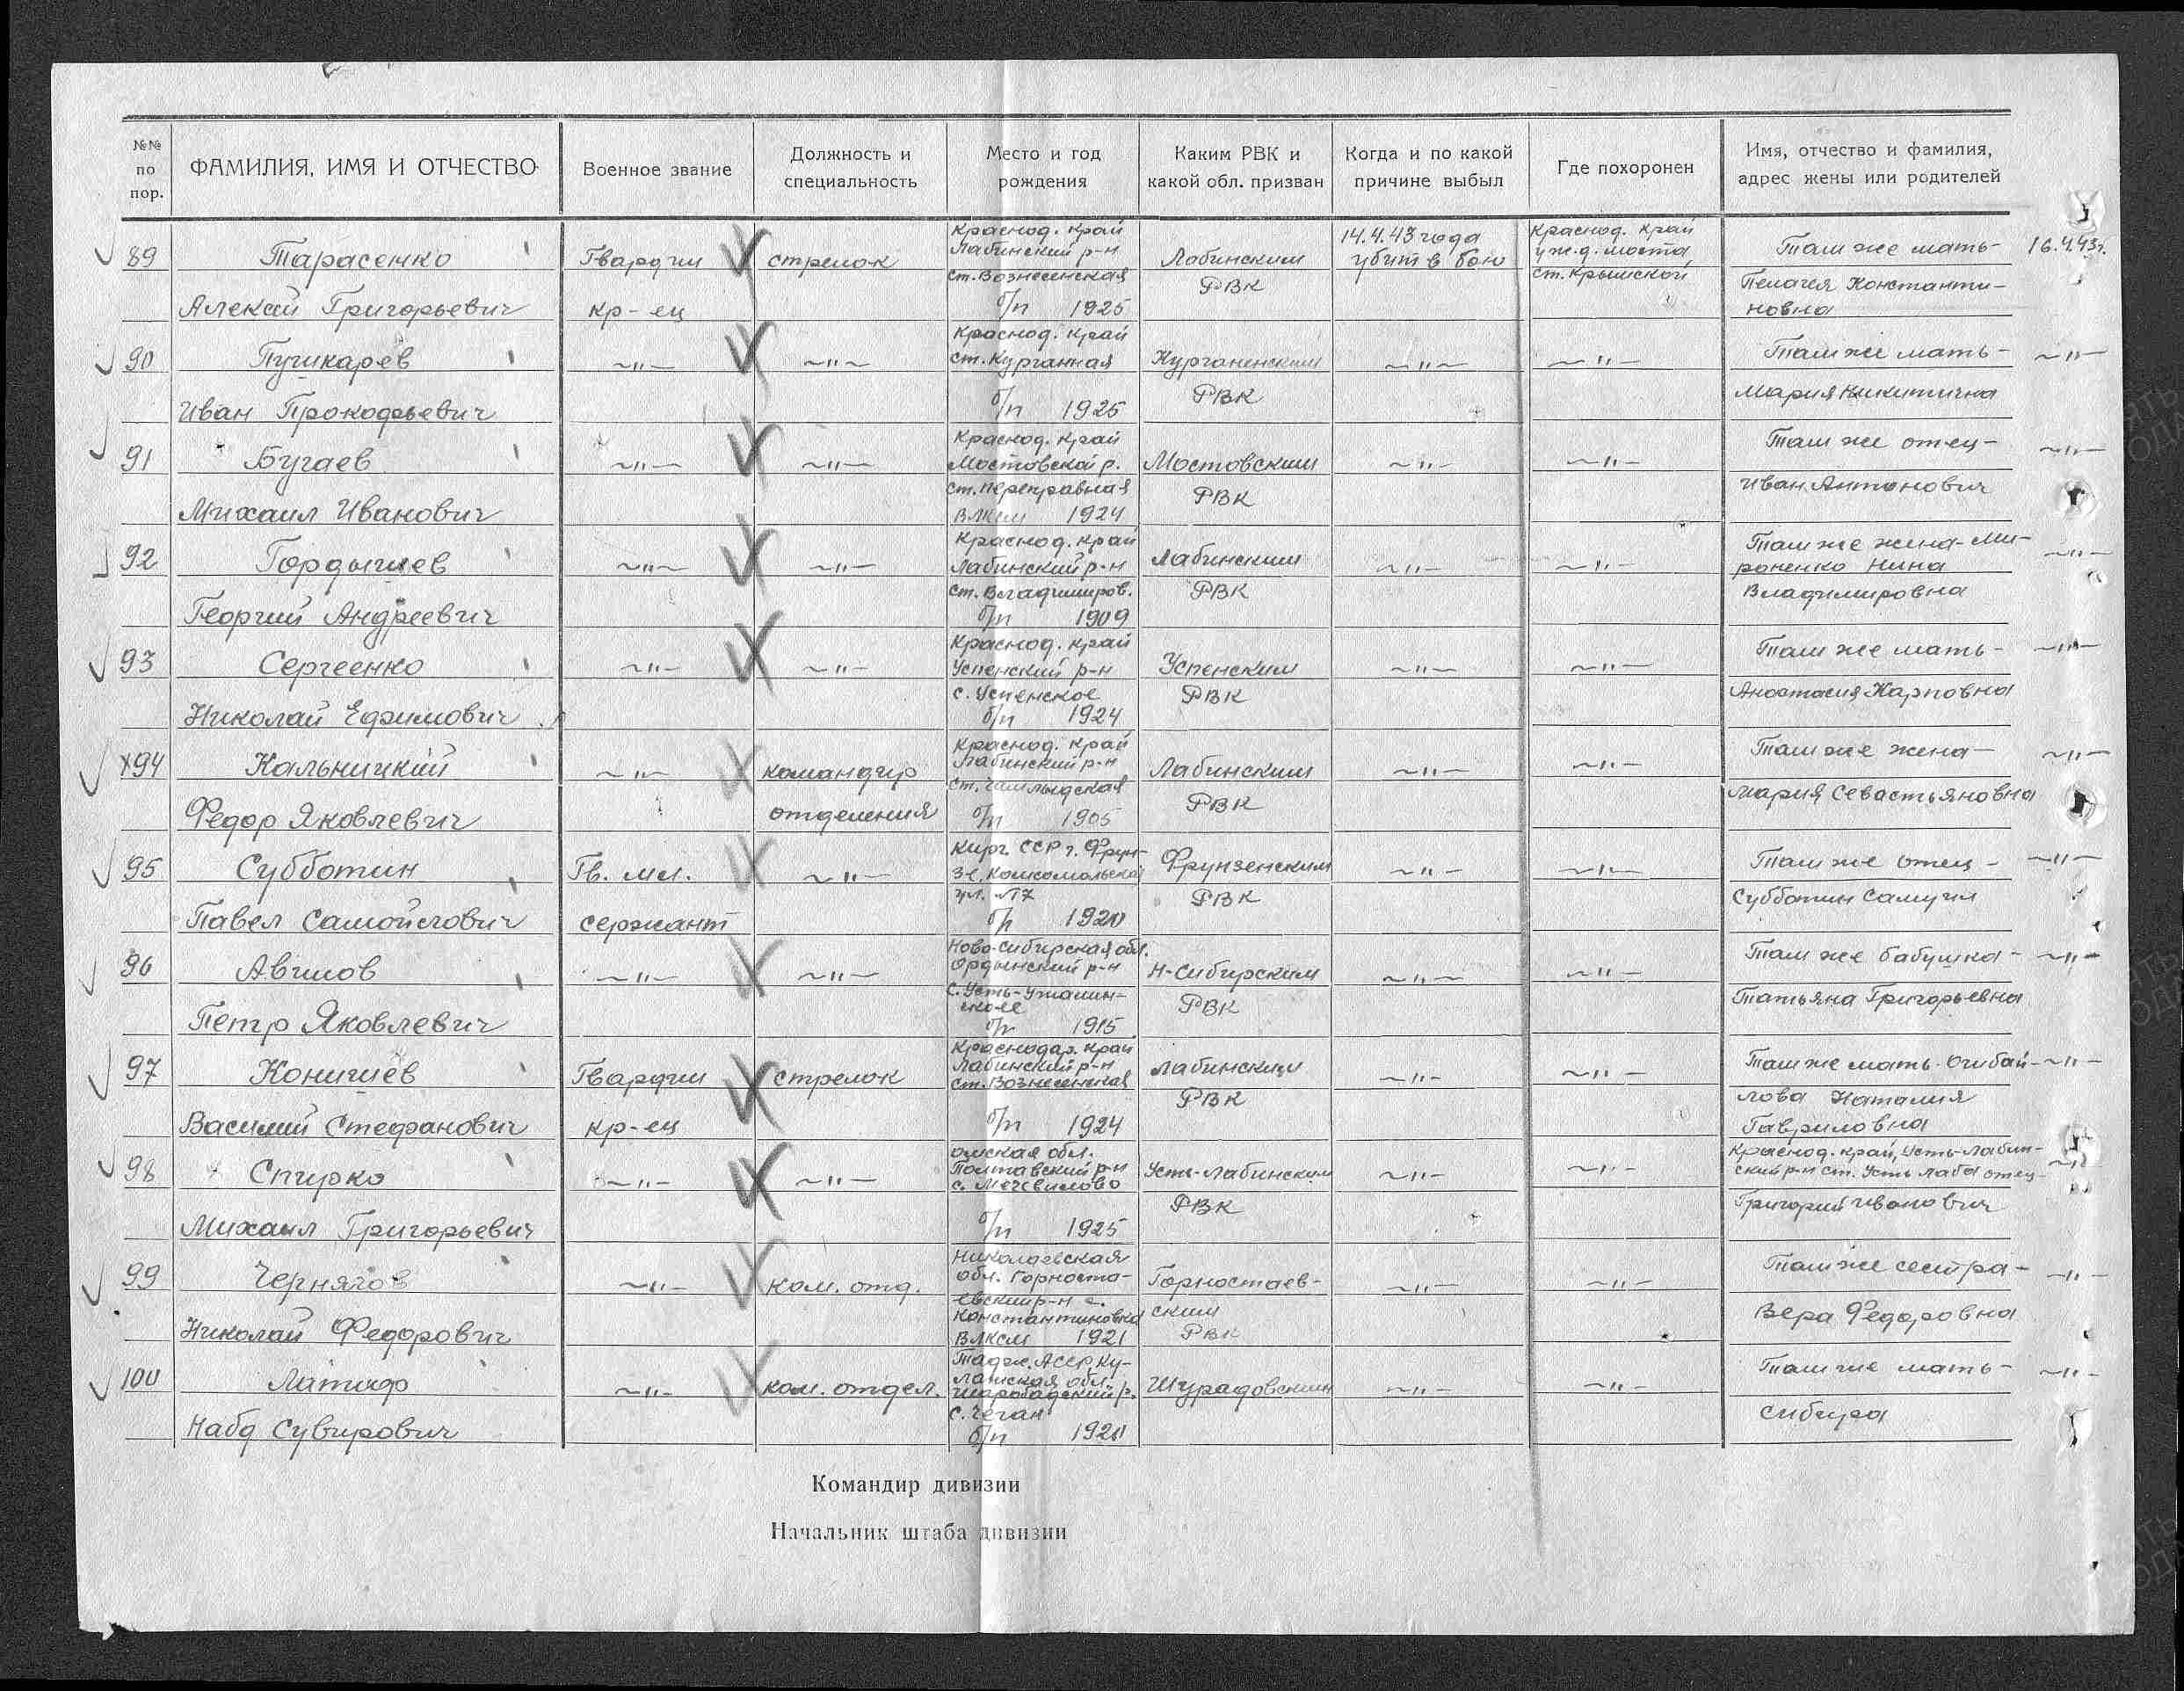 №№ по пор.
ФАМИЛИЯ, ИМЯ И ОТЧЕСТВО
Военное звание
Должность и специальность
Место и год рождения
Каким РВК и какой обл. призван
Когда и по какой причине выбыл
Где похоронен
Имя, отчество и фамилия, адрес жены или родителей
89 Тарасенко Гвардии стрелок Краснод. край Лабинский р-н Лабинским 14.4.43 года убит в бою Краснод. край у ж.д. моста Там же мать- 16.4.43г.
Алексей Григорьевич кр-ец ст. Вознесенская б/п 1925 РВК ст. Крымской Пелагея Константиновна
90 Пушкарев ~"~ ~"~ Краснод. край ст. Курганная Курганенским ~"~ ~"~ Там же мать- ~"~
Иван Прокофьевич б/п 1925 РВК Мария Никитична
91 Бугаев ~"~ ~"~ Краснод. край Мостовской р. Мостовским ~"~ ~"~ Там же отец- ~"~
Михаил Иванович ст. Переправная ВЛКСМ 1924 РВК Иван Антонович
92 Гордышев ~"~ ~"~ Краснод. край Лабинский р-н Лабинским ~"~ ~"~ Там же жена-Ми- ~"~
Георгий Андреевич ст. Владимиров. б/п 1909 РВК роненко Нина Владимировна
93 Сергеенко ~"~ ~"~ Краснод. край Успенский р-н Успенским ~"~ ~"~ Там же мать- ~"~
Николай Ефимович с. Успенское б/п 1924 РВК Анастасия Карповна
94 Кальницкий ~"~ командир Краснод. край Лабинский р-н Лабинским ~"~ ~"~ Там же жена- ~"~
Федор Яковлевич отделения ст. Чамлыдская б/п 1905 РВК Мария Севастьяновна
95 Субботин Гв. мл. ~"~ Кирг. ССР г. Фрун- зе, Комсомольская Фрунзенским ~"~ ~"~ Там же отец- ~"~
Павел Самойлович сержант ул. №7 1920 РВК Субботин Самуил
96 Авилов ~"~ ~"~ Ново-Сибирская обл. Ордынский р-н Н-Сибирским ~"~ ~"~ Там же бабушка- ~"~
Петр Яковлевич 1915 РВК Татьяна Григорьевна
97 Конишев Гвардии стрелок Краснодар. край Лабинский р-н Лабинским ~"~ ~"~ Там же мать- ~"~
Василий Стефанович кр-ец ст. Вознесенская б/п 1924 РВК Наталия Гавриловна
98 Спирко ~"~ ~"~ Омская обл. Полтавский р-н Усть-Лабинским ~"~ ~"~ Краснод. край, Усть-Лабин- ский р-н ст. Усть Лаба отец- ~"~
Михаил Григорьевич б/п 1925 РВК Григорий Иванович
99 Чернягов ~"~ ком. отд. Николаевская обл. Горноста- Горностаев- ~"~ ~"~ Там же сестра- ~"~
Николай Федорович евский р-н с. Константиновка ВЛКСМ 1921 ским РВК Вера Федоровна
100 Латиф ~"~ ком. отдел. Тадж. АССР, Ку- лябская обл. ~"~ ~"~ Там же мать- ~"~
Набд Сувирович с. Чеган б/п 1920 Сибира
Командир дивизии
Начальник штаба дивизии